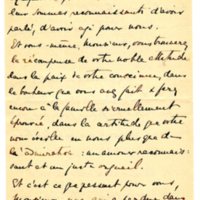 leur sommes reconnaissants d'avoir
parlé, d'avoir agi pour nous.
Et vous-même, monsieur, vous trouverez
la récompense de votre noble attitude
dans la paix de votre conscience, dans
le bonheur que vous avez fait & ferez
encore à la famille si cruellement
éprouvée dans la attitude que
votre en nous plus que de
l'admiration : un amour reconnais-
sant et un juste orgueil.
Et c'est ce que pensent pour vous,
monsieur, dans